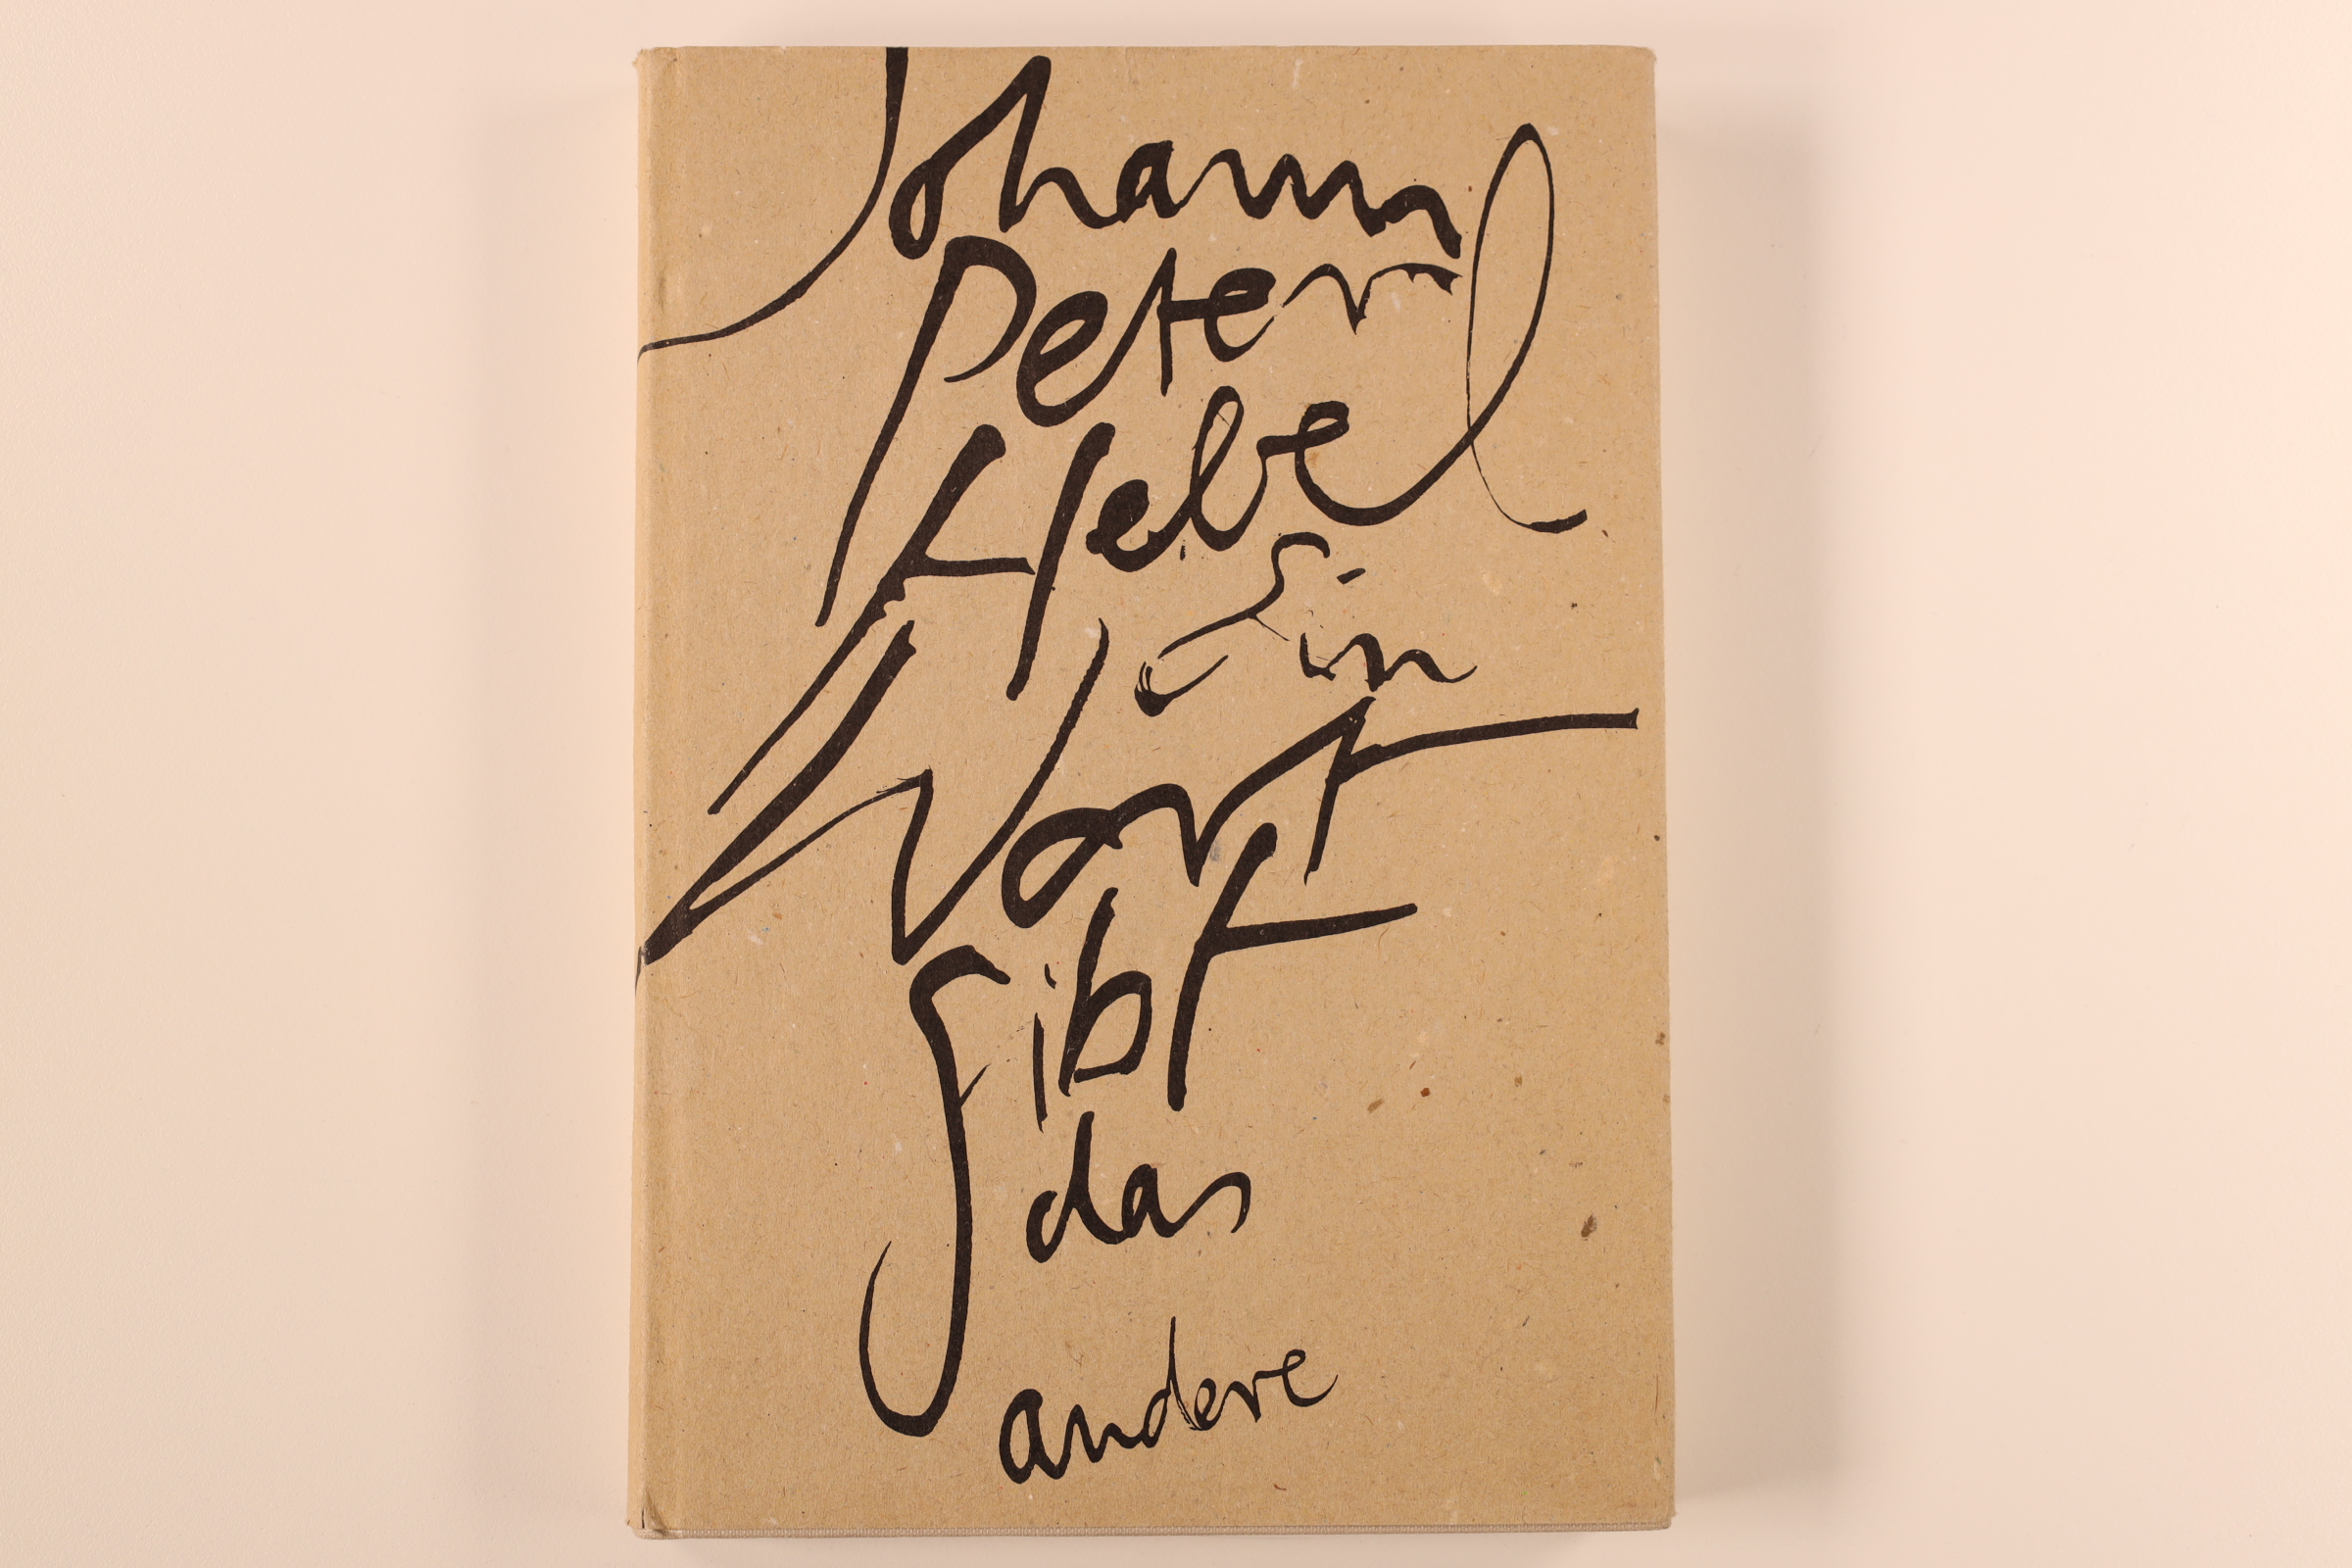 Johann
Peter
Hebel
Ein
Wort
gibt
das
andere